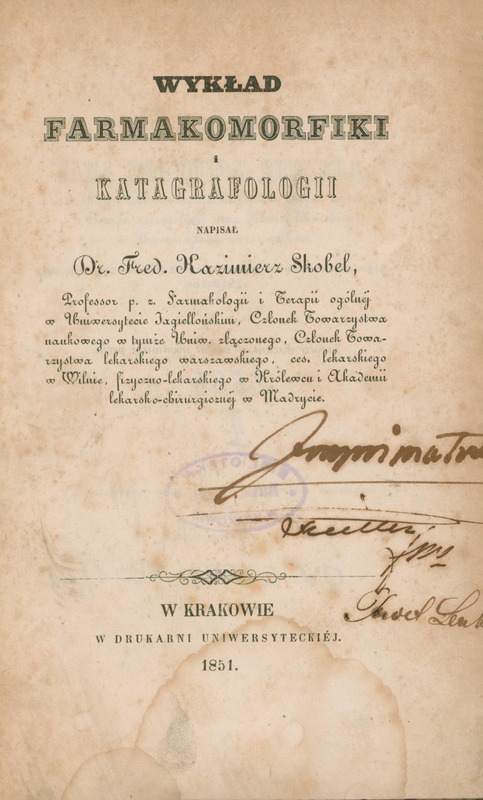 WYKŁAD
FARMAKOMORFIKI
i
KATAGRAFOLOGII
NAPISAŁ
Dr. Fred. Kazimierz Skobel,
Professor p. z. Farmakologii i Terapii ogólnéj
w Uniwersytecie Jagiellońskim, Członek Towarzystwa
naukowego w tymże Uniw. złączonego, Członek Towa-
rzystwa lekarskiego warszawskiego, ces. lekarskiego
w Wilnie, fizyczno-lekarskiego w Królewcu i Akademii
lekarsko-chirurgicznéj w Madrycie.
Imprimatur
Paweł
W KRAKOWIE
W DRUKARNI UNIWERSYTECKIÉJ.
1851.